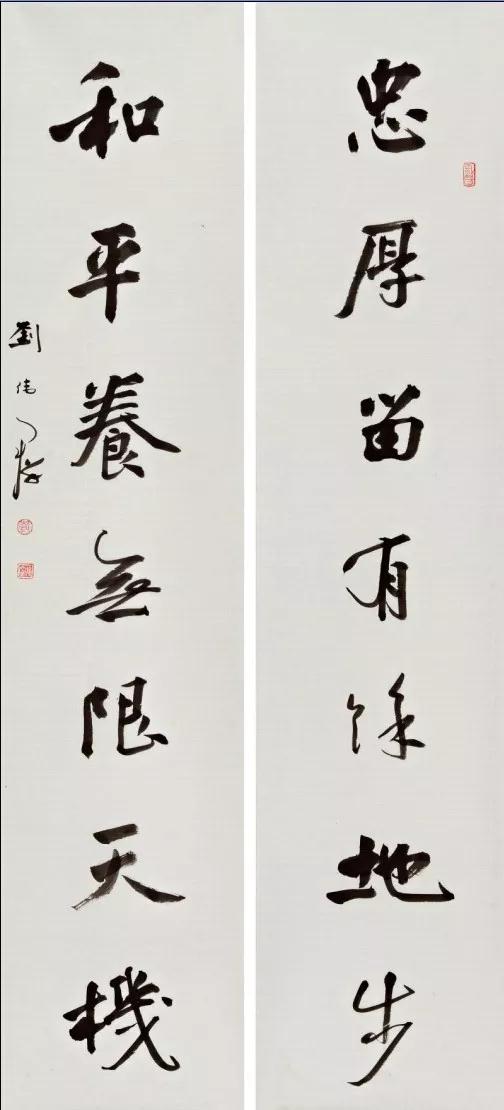 忠厚留有餘地步
和平養無限天機
劉偉